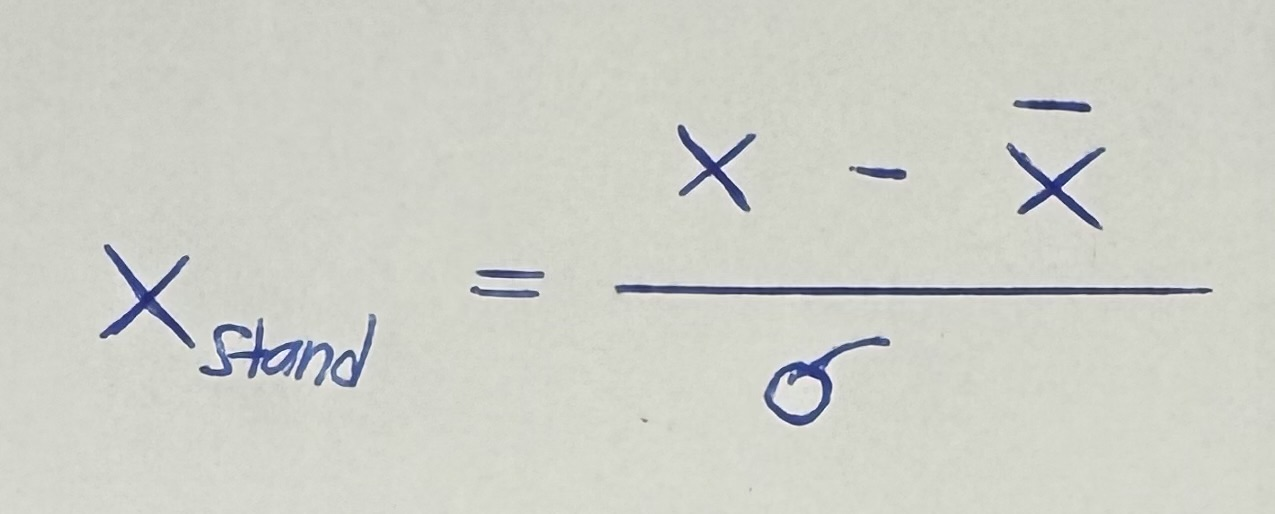 X_stand = (x - x̄) / σ